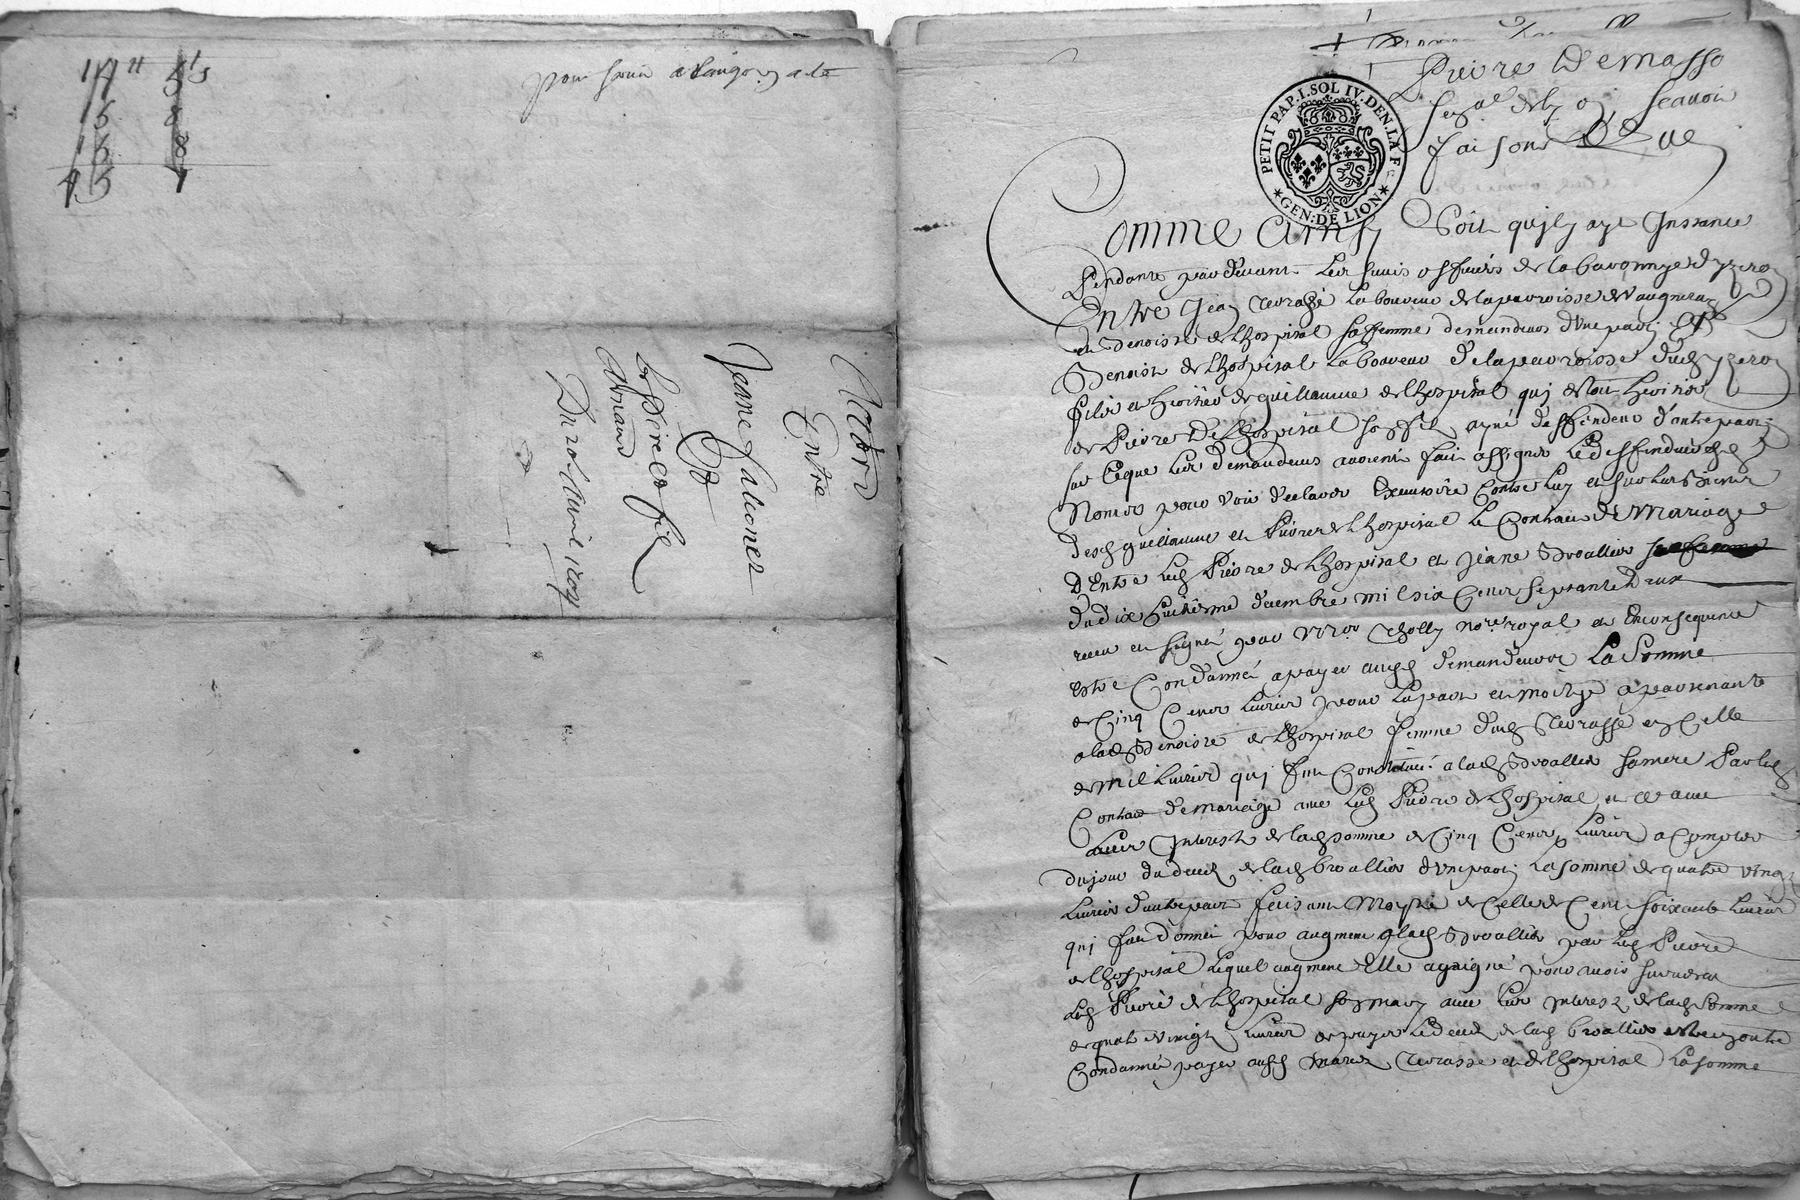 17tt 4s
16 8
13 8
45 4
pour servir a
Entre
Janne faleonet
Et
fils
Du 20 Avril 1704
PETIT PAP. I. SOL IV. DEN. LA F.
GEN: DE LION
Pierre Demasso
Senal de Lyon Scauoir
faisons Que
Comme Ainsy Soit quil y aye Instance
Pendante par deuant Les sieurs officiers de la baronnye dyzeron
Entre Jean Terrasse Laboureur de la parroisse de Vaugneray
et Benoiste de Lhospital sa ffemme demandeurs d'une part Et
Benoist de Lhospital Laboureur de la parroisse dud yzeron
fils et heritier de guillaume de lhospital qui estoit heritier
de Pierre De Lhospital son fils ayné deffendeur d'autre part
sur Ce que Les demandeurs auroient fait assigner Le deffendeur
pour voir declarer Executoire Contre Luy et sur Les Biens
desd guillaume et Pierre de Lhospital Le Contract De Mariage
d'Entre Led Pierre de Lhospital et Jeane Broallier
du dix huictiesme decembre mil six Cens septante Deux
receu et signé par Tholly nore royal et En consequence
estre Condamné a payer ausd demandeurs La Somme
de Cinq Cens Liures pour La part et moitye apartenante
a lad Benoiste de Lhospital femme dud Terrasse en Celle
de mil Liures qui fut Constituée a lad Broallier sa mere Par led
Contract de mariage auec Led Pierre de Lhospital et ce auec
Les Interests de lad somme de Cinq Cens Liures a Compter
du jour du deces de lad broallier d'une part La somme de quatre vingt
Liures d'autre part faisant Moytié de Celle de Cent soixante Liures
qui fut donnée pour augment a lad Broallier par Led Pierre
de Lhospital Lequel augment Elle a gaigné pour auoir suruescu
Led Pierre de Lhospital son mary auec Les Interests de lad Somme
de quatre vingt Liures Le deces de lad broallier estre en outre
Condamné payer ausd mariez Terrasse et de Lhospital La somme